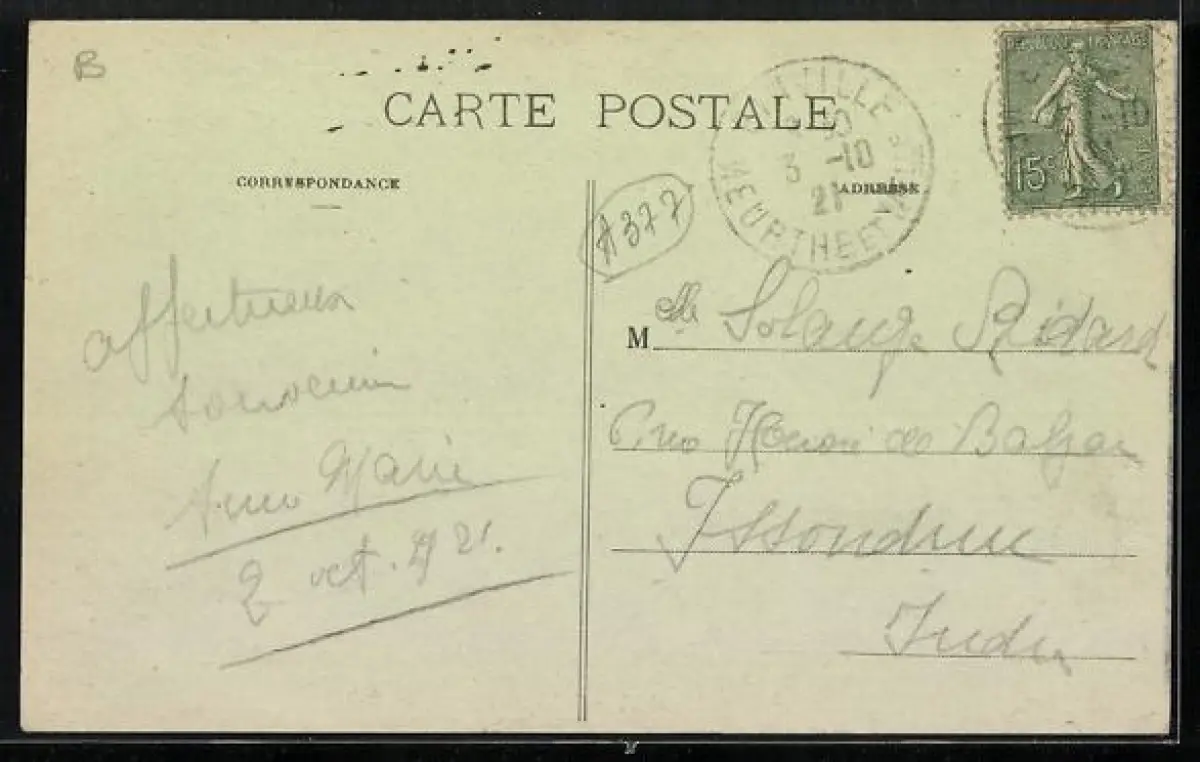 B
CARTE POSTALE
CORRESPONDANCE
ADRESSE
REPUBLIQUE FRANÇAISE
15c
3 -10
21
MEURTHE ET M
-10
A377
affectueux
souvenir
Anne Marie
2 oct. 1921.
Mlle Solange Ridard
Rue Honoré de Balzac
Issoudun
Indre